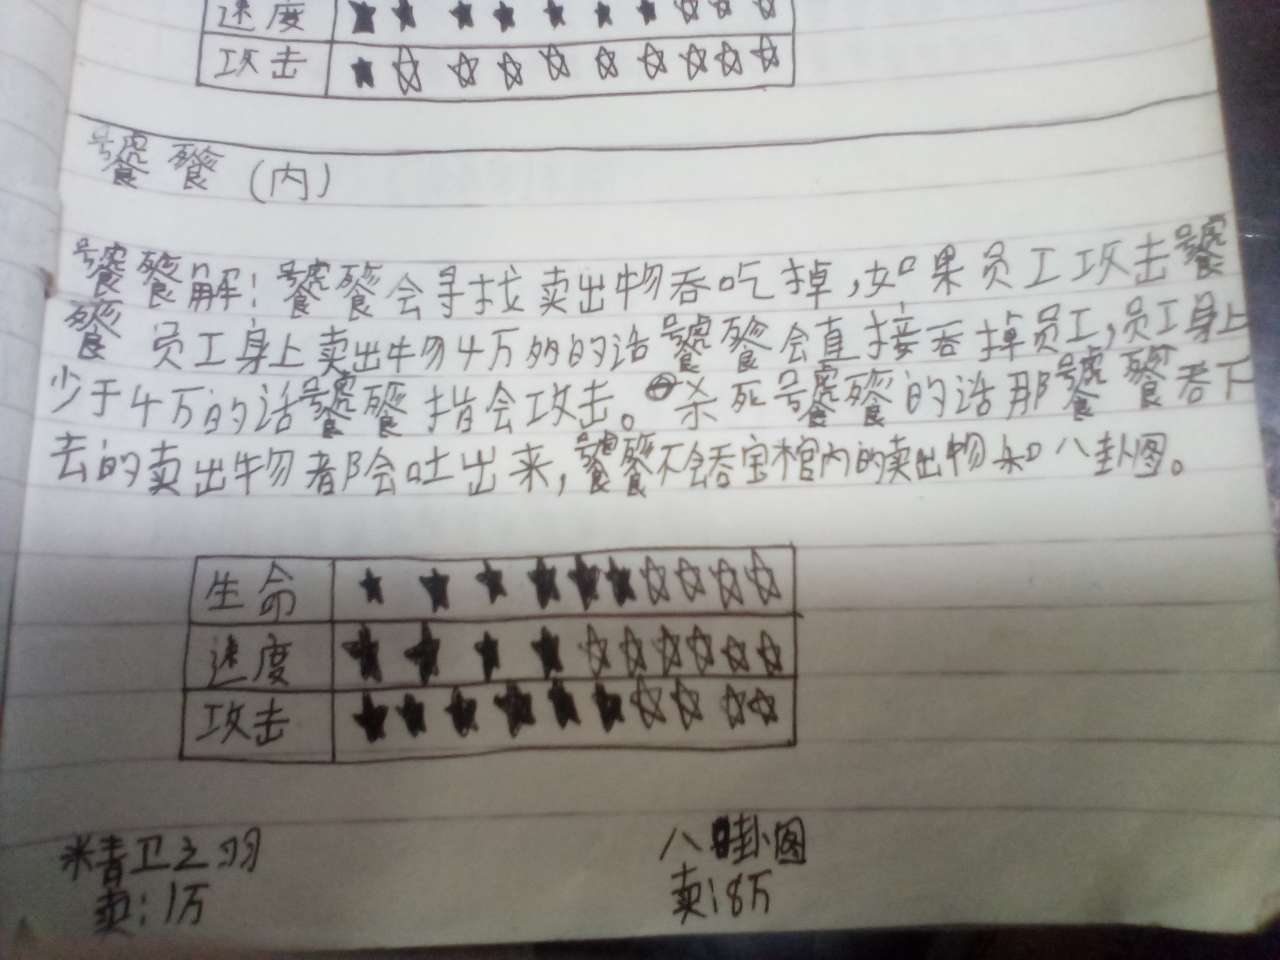 速度 ★★★★★★★☆☆☆
攻击 ★☆☆☆☆☆☆☆☆☆
饕餮(内)
饕餮解:饕餮会寻找卖出物吞吃掉,如果员工攻击饕
餮 员工身上卖出物4万多的话饕餮会直接吞掉员工,员工身上
少于4万的话饕餮指会攻击。杀死饕餮的话那饕餮吞下
去的卖出物都会吐出来,饕餮不会吞宝棺内的卖出物和八卦图。
生命 ★★★★★★☆☆☆☆
速度 ★★★★☆☆☆☆☆☆
攻击 ★★★★★★☆☆☆☆
精卫之羽
卖:1万
八卦图
卖:8万